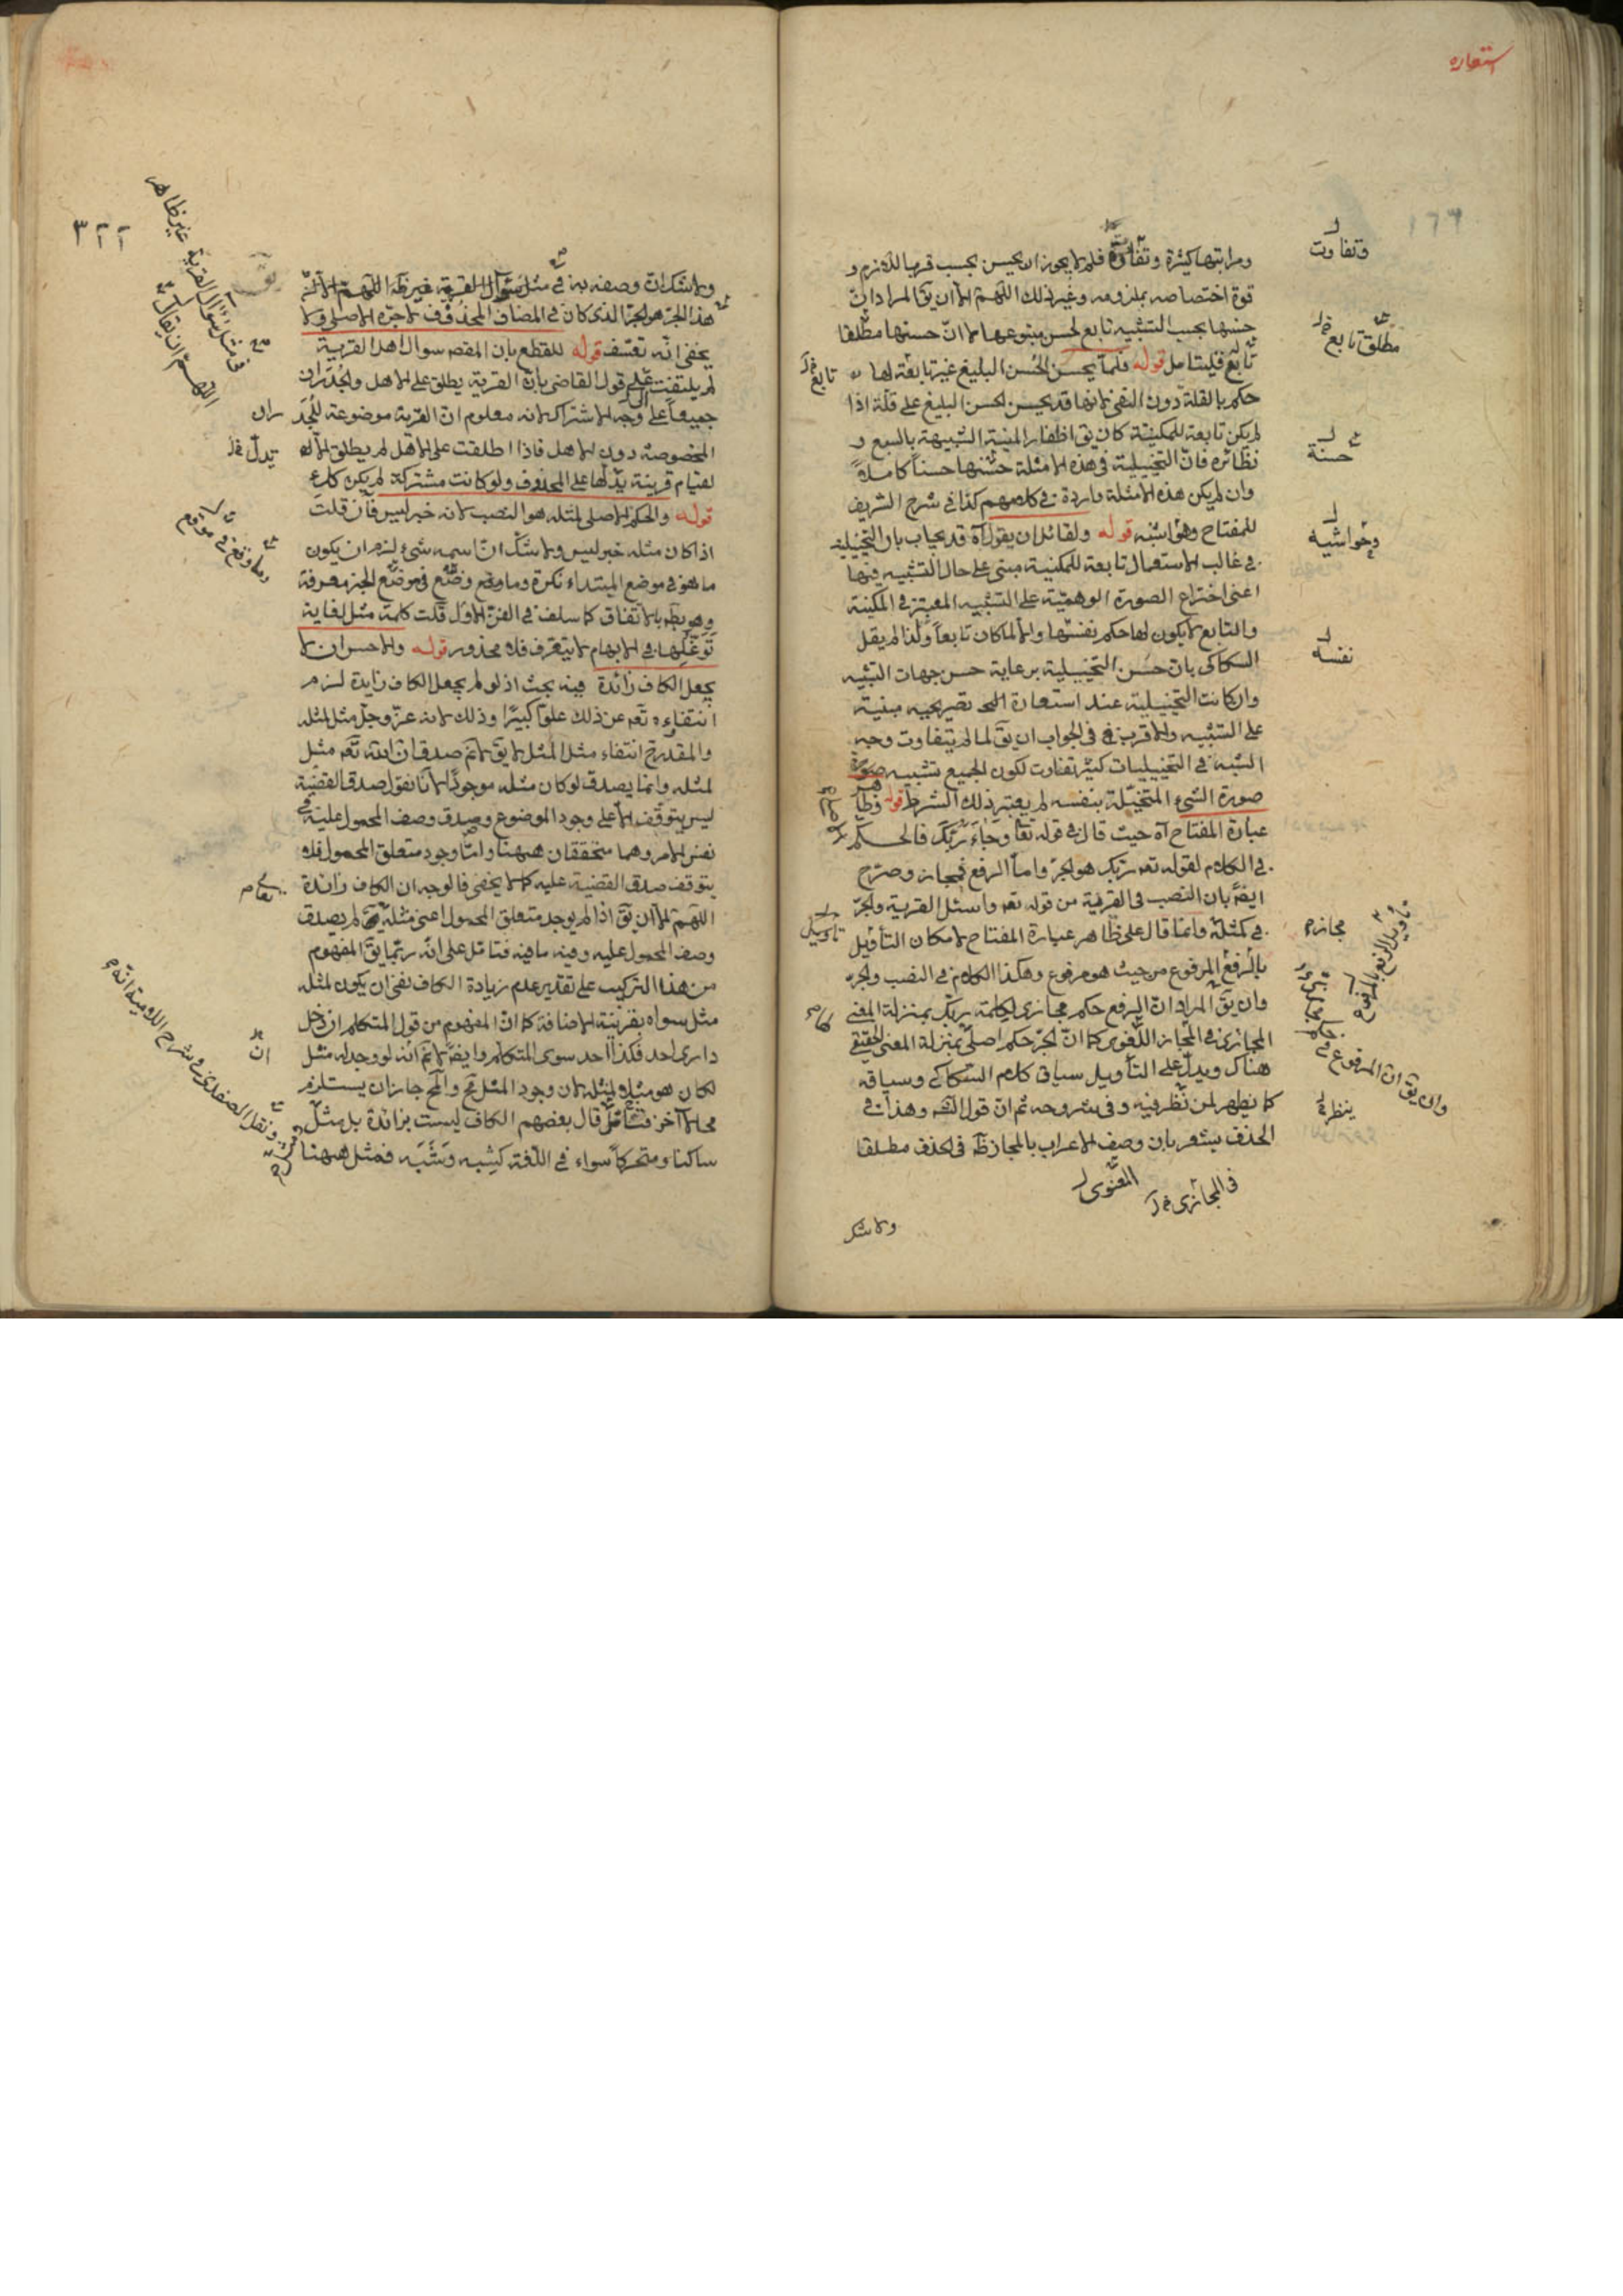 استعاره
ومراتبها كثيرة وتفاوت فلم لا يجوز ان يحسن بحسب قربها اللازم و
قوة اختصاصه بملزومه وغير ذلك اللهم الا ان يق المراد ان
حسنها بحسب التشبيه تابع لحسن متبوعها لا ان حسنها مطلقا
تابع فليتامل قوله فلما يحسن الحسن البليغ غير تابعة لها
حكم بالقلة دون النفى لانها قد يحسن لحسن البليغ على قلة اذا
لم يكن تابعة للمكنية كان يق اظفار المنية الشبيهة بالسبع و
نظائره فان التخييلية فى هذه الامثلة حسنها حسنا كاملا
وان لم يكن هذه الامثلة واردة فى كلامهم كذا فى شرح الشريف
للمفتاح وحواشيه قوله ولقائل ان يقول آه قد يجاب بان التخييلية
فى غالب الاستعمال تابعة للمكنية مبنى على حال التشبيه فيها
اعنى اختراع الصورة الوهمية على التشبيه المعتبر فى المكنية
والتابع لا يكون لها حكم بنفسها والا لما كان تابعا ولذا لم يقل
السكاكى بان حسن التخييلية برعاية حسن جهات التشبيه
وان كانت التخييلية عند استعارة تصريحيه مبنية
على التشبيه والاقرب فى الجواب ان يق لما لم يتفاوت وجه
الشبه فى التخييليات كثير تفاوت لكون الجميع تشبيه صورة
صورة الشىء المتخيلة بنفسه لم يعتبر ذلك الشرط قوله وظاهر
عبارة المفتاح آه حيث قال فى قوله تعا وجاء ربك فالحكم
فى الكلام لقوله تعه ربك هو الجر واما الرفع فمجاز وصرح
ايضا بان النصب فى القرية من قوله تعه واسئل القرية والجر
فى كمثله وانما قال على ظاهر عبارة المفتاح لامكان التأويل
بالرفع المرفوع من حيث هو مرفوع وهكذا الكلام فى النصب والجر
وان يق المراد ان الرفع حكم مجازى لكلمة ربك بمنزلة المعنى
المجازى فى المجاز اللغوى كما ان الجر حكم اصلى بمنزلة المعنى الحقيقى
هناك ويدل على التأويل سياق كلام السكاكى وسياقه
كما يظهر لمن نظر فيه وفى شروحه ثم ان قول الش وهذا فى
الحذف يشعر بان وصف الاعراب بالمجاز ظه فى الحذف مطلقا
ولا شك
وتفاوت
مطلق تابع
تابع
حسنة
وحواشيه
نفسه
مجازه
تاويل
تاويل الرفع بالمرفوع
وان يق ان المرفوع حكم مجازى
ينظر
فى المجازى
المعنوى
٣٢٢
ولا شك ان وصفه به فى مثل سؤال القرية غير ظه اللهم الا ان
هذا الجر هو الجر الذى كان فى المضاف المحذوف لا جره الاصلى ولا
يخفى انه تعسف قوله للقطع بان المقصه سوال اهل القرية
لم يلتفت الى قول القاضى بان القرية يطلق على الاهل والجدران
جميعا على وجه الاشتراك لانه معلوم ان القرية موضوعة للجد
المخصوصة دون الاهل فاذا اطلقت على الاهل لم يطلق الا
لقيام قرينة يدلها على المحذوف ولو كانت مشتركة لم يكن كلاع
قوله والحكم الاصلى لمثله هو النصب لانه خبر ليس فان قلت
اذا كان مثله خبر ليس ولا شك ان اسمه شىء لزم ان يكون
ما هو فى موضع المبتداء نكرة وما وقع وضع فى موضع الخبر معرفة
وهو بط بالاتفاق كما سلف فى الفن الاول قلت كلمة مثل لغاية
توغلها فى الابهام لا يتعرف فلا محذور قوله والاحسن ان لا
يجعل الكاف زائدة فيه بحث اذ لو لم يجعل الكاف زايدة لزم
انتفاءه تعه عن ذلك علوا كبيرا وذلك لانه عز وجل مثل لمثله
والمقدرح انتفاء مثل المثل لا يق لا نم صدق ان الله تعه مثل
لمثله وانما يصدق لو كان مثله موجودا لانا نقول صدق القضية
ليس يتوقف الا على وجود الموضوع وصدق وصف المحمول عليه فى
نفس الامر وهما متحققان ههنا واما وجود متعلق المحمول فلا
يتوقف صدق القضية عليه كما لا يخفى فالوجه ان الكاف زائدة
اللهم الا ان يق اذا لم يوجد متعلق المحمول اعنى مثله لم يصدق
وصف المحمول عليه وفيه ما فيه فتامل على انه ربما يق المفهوم
من هذا التركيب على تقدير عدم زيادة الكاف نفى ان يكون لمثله
مثل سواه بقرينة الاضافة كما ان المفهوم من قول المتكلم ان دخل
دارى احد فكذا احد سوى المتكلم وايضا لا نم انه لو وجد له مثل
لكان هو مثلا لمثله لان وجود المثل مح والمح جاز ان يستلزم
محالا آخر فتامل قال بعضهم الكاف ليست بزائدة بل مثل
ساكنا ومتحركا سواء فى اللغة كشبه وشبه فمثل ههنا
فى مثل سوال القرية غير ظاهر
اللهم الا ان يقال
ران
تدل
وما وقع فى موقع
تعا
ان
ونقل الصفدى فى شرح اللامية انه